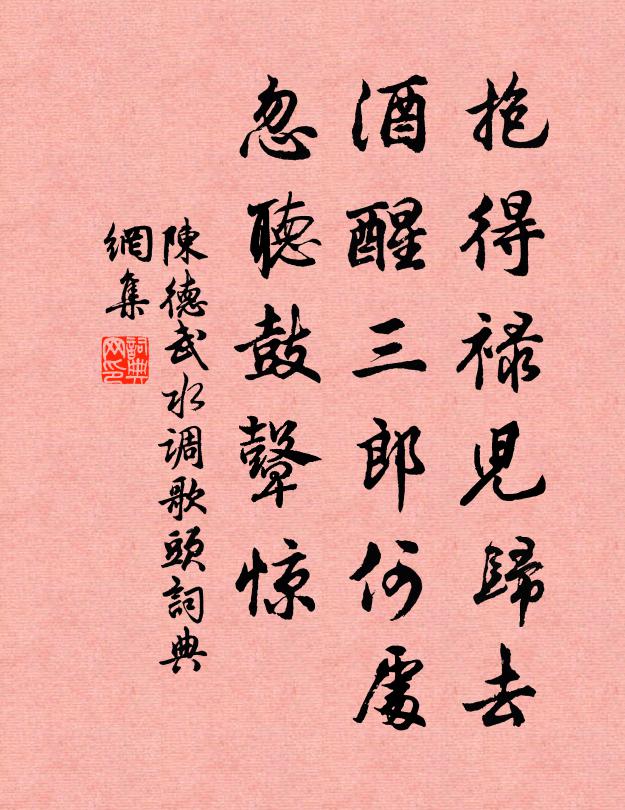 抱得禄児歸去
酒醒三郎何處
忽聽鼓鼙惊
陳德武水调歌頭詞典
網集
詞典
网印